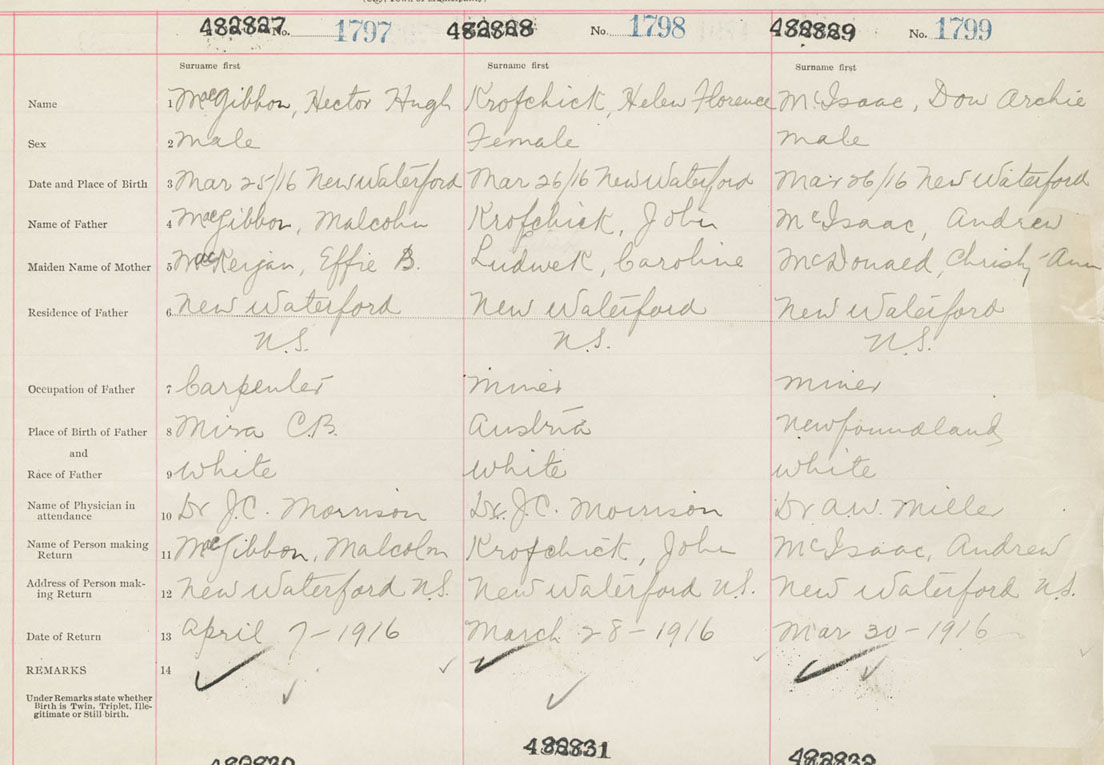 (City, Town or Municipality)
482827 No. 1797 482828 No. 1798 482829 No. 1799
Surname first Surname first Surname first
Name 1 MacGibbon, Hector Hugh Krofchick, Helen Florence McIsaac, Dow Archie
Sex 2 Male Female Male
Date and Place of Birth 3 Mar 25/16 New Waterford Mar 26/16 New Waterford Mar 26/16 New Waterford
Name of Father 4 MacGibbon, Malcolm Krofchick, John McIsaac, Andrew
Maiden Name of Mother 5 Effie B. Ludwek, Caroline McDonald, Christy-Ann
Residence of Father 6 New Waterford New Waterford New Waterford
N.S. N.S. N.S.
Occupation of Father 7 Carpenter Miner Miner
Place of Birth of Father 8 Mira C.B. Austria Newfoundland
and
Race of Father 9 White White White
Name of Physician in
attendance 10 Dr J.C. Morrison Dr. J.C. Morrison Dr A.W. Miller
Name of Person making
Return 11 MacGibbon, Malcolm Krofchick, John McIsaac, Andrew
Address of Person mak-
ing Return 12 New Waterford N.S. New Waterford N.S. New Waterford N.S.
Date of Return 13 April 7-1916 March 28-1916 Mar 30-1916
REMARKS 14
Under Remarks state whether
Birth is Twin, Triplet, Ille-
gitimate or Still birth.
482830 482831 482832